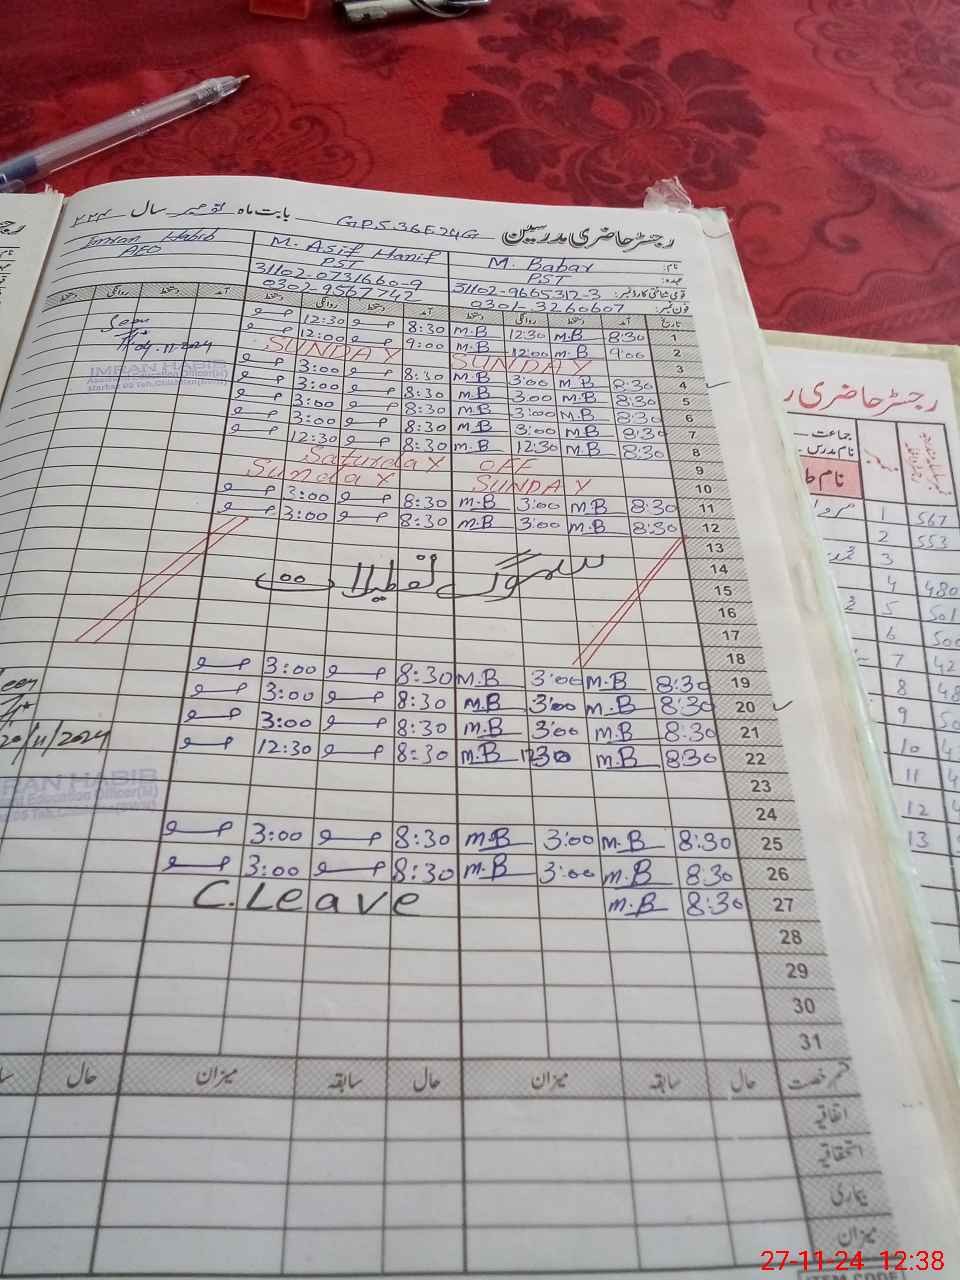 رجسٹر حاضری مدرسین G.P.S 36E24G بابت ماہ نومبر سال
نام: M. Babar M. Asif Hanif Imran Habib
عہدہ: PST PST AEO
قومی شناختی کارڈ نمبر: 31102-9665312-3 31102-0731660-9
فون نمبر: 0301-3260607 0302-9567742
تاریخ آمد دستخط روانگی دستخط آمد دستخط روانگی دستخط آمد دستخط روانگی دستخط
1 8:30 M.B 12:30 M.B 8:30 12:30
2 9:00 M.B 12:00 M.B 9:00 12:00
3 SUNDAY SUNDAY
4 8:30 M.B 3:00 M.B 8:30 3:00
5 8:30 M.B 3:00 M.B 8:30 3:00
6 8:30 M.B 3:00 M.B 8:30 3:00
7 8:30 M.B 3:00 M.B 8:30 3:00
8 8:30 M.B 12:30 M.B 8:30 12:30
9 Saturday OFF
10 SUNDAY Sunday
11 8:30 M.B 3:00 M.B 8:30 3:00
12 8:30 M.B 3:00 M.B 8:30 3:00
13
14 سموگ تعطیلات
15
16
17
18
19 8:30 M.B 3:00 M.B 8:30 3:00
20 8:30 M.B 3:00 M.B 8:30 3:00
21 8:30 M.B 3:00 M.B 8:30 3:00
22 8:30 M.B 12:30 M.B 8:30 12:30
23
24
25 8:30 M.B 3:00 M.B 8:30 3:00
26 8:30 M.B 3:00 M.B 8:30 3:00
27 8:30 M.B C.Leave
28
29
30
31
قسم رخصت حال سابقہ میزان حال سابقہ میزان حال
اتفاقیہ
استحقاقیہ
بیماری
میزان
04.11.2024
IMRAN HABIB
20/11/2024
IMRAN HABIB
Education Officer(M)
رجسٹر حاضری
جماعت
نام مدرس
1 567
2 553
3
4 480
5 501
6 500
7 42
8 48
9 50
10
11
12
13
27-11-24 12:38